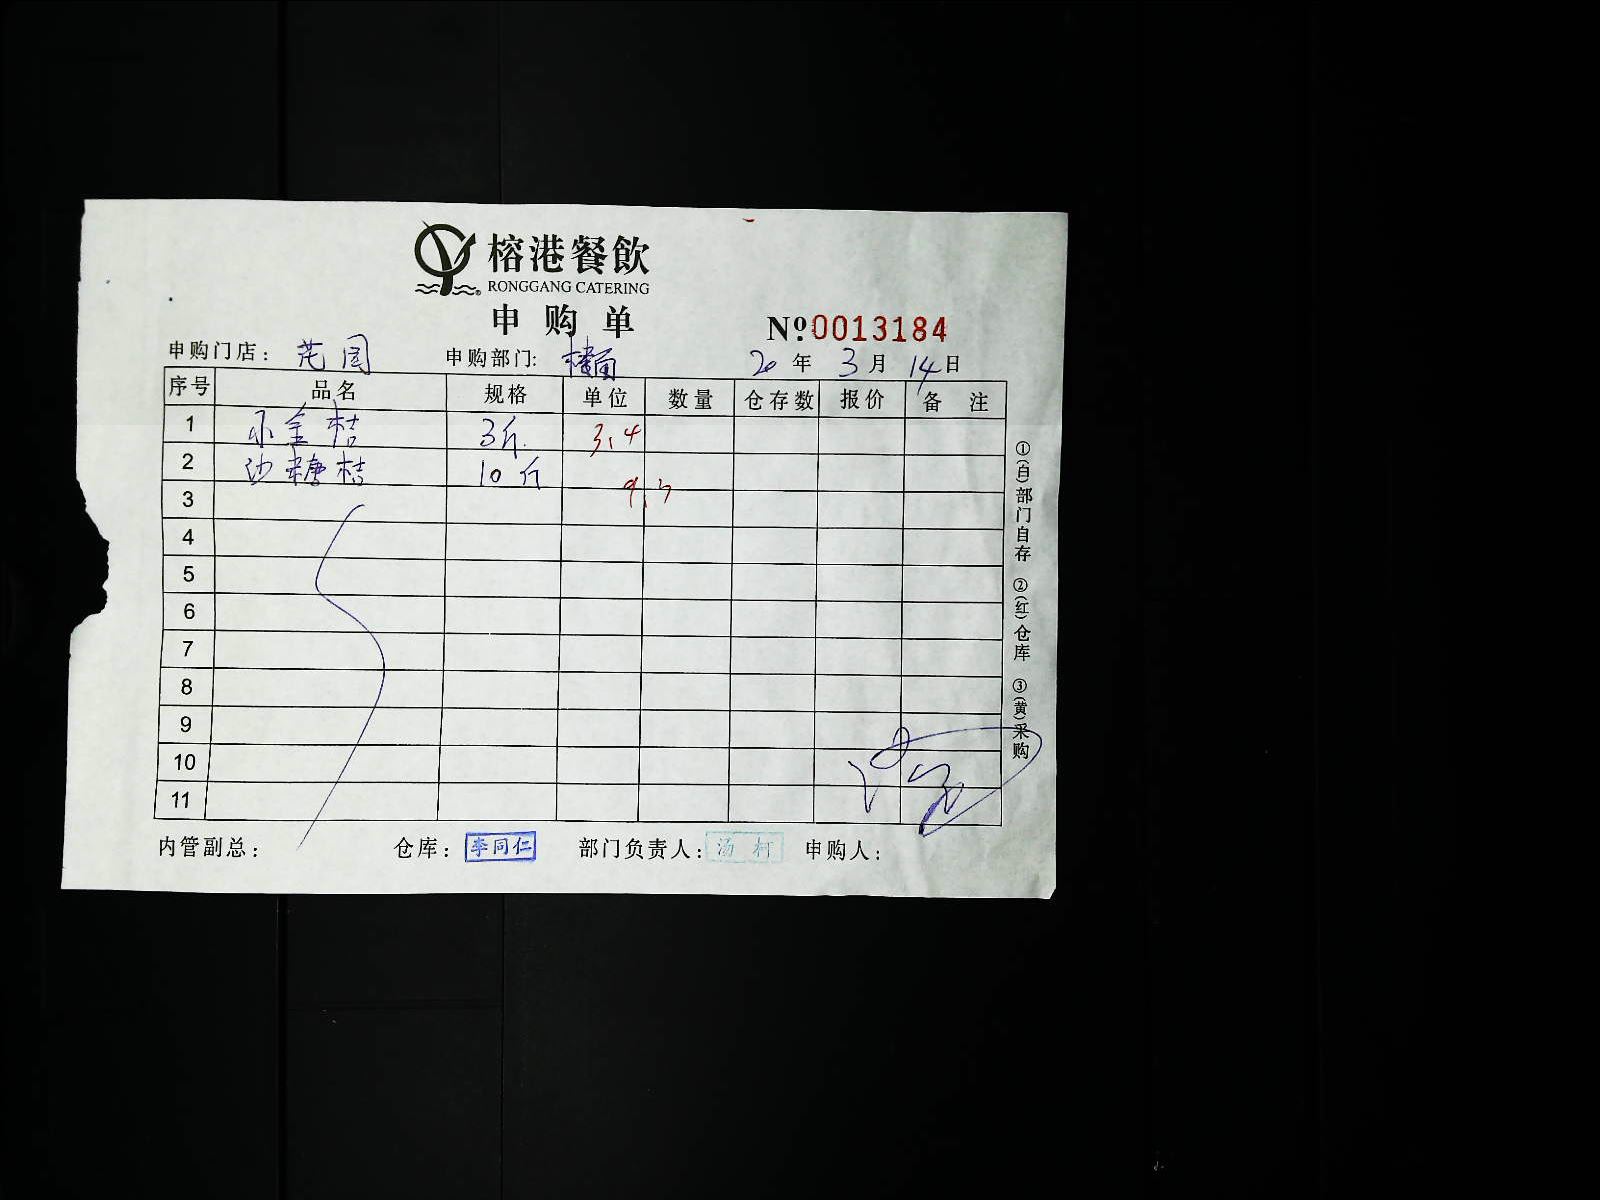 榕港餐飲
RONGGANG CATERING
申购单
Nº:0013184
申购门店: 芫园 申购部门: 楼面 20年3月14日
序号 品名 规格 单位 数量 仓存数 报价 备注
1 小金桔 3斤. 3.4
2 沙糖桔 10斤 9.7
3
4
5
6
7
8
9
10
11
内管副总: 仓库: 李同仁 部门负责人: 汤柯 申购人:
①(白)部门自存 ②(红)仓库 ③(黄)采购